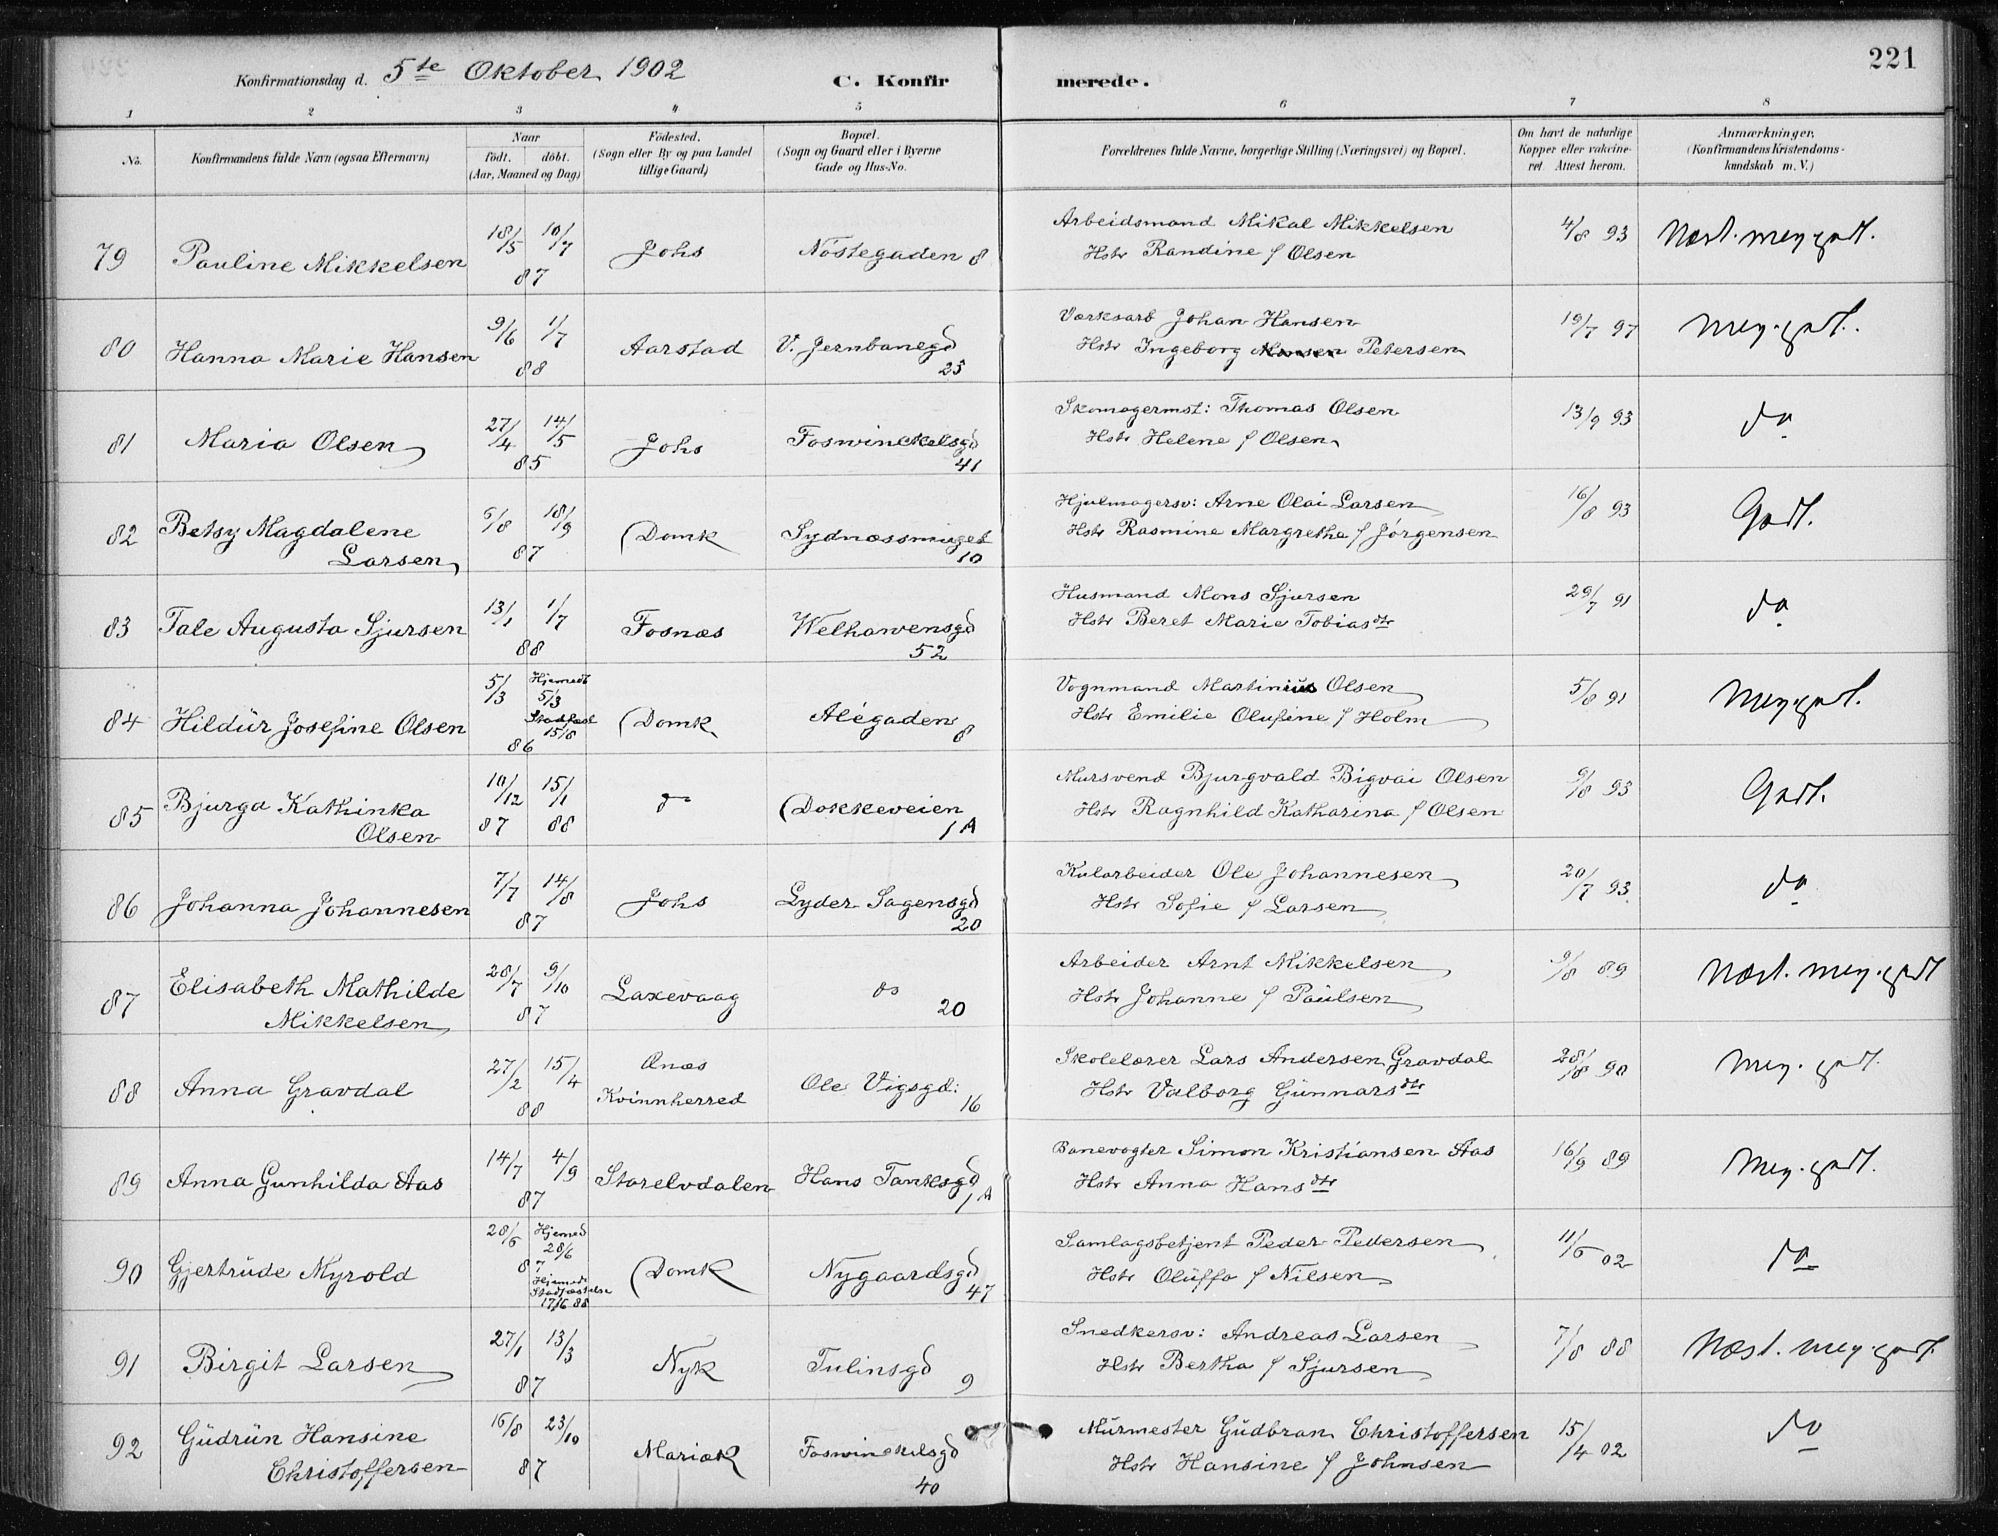 221
Konfirmationsdag d. 5te Oktober 1902 C. Konfir merede.
1 2 3 4 5 6 7 8
No. Konfirmandens fulde Navn (ogsaa Efternavn) Naar födt. döbt. (Aar, Maaned og Dag) Födested. (Sogn eller By og paa Landet tillige Gaard) Bopæl. (Sogn og Gaard eller i Byerne Gade og Hus-No. Forældrenes fulde Navne, borgerlige Stilling (Næringsvei) og Bopæl. Om havt de naturlige Kopper eller vakcineret. Attest herom. Anmærkninger. (Konfirmandens Kristendomskundskab m. V.)
79 Pauline Mikkelsen 18/5 10/7 87 Johs Nöstegaden 8 Arbeidsmand Mikal Mikkelsen 4/8 93 Næst. meg. godt.
Hstr Randine f Olsen
80 Hanna Marie Hansen 9/6 1/7 88 Aarstad V. Jernbanegd 25 Værksarb Johan Hansen 19/7 97 Meg. godt.
Hstr Ingeborg Petersen
81 Maria Olsen 27/4 14/5 85 Johs Foswinckelsgd 41 Skomagermst: Thomas Olsen 13/9 93 do
Hstr Helene f Olsen
82 Betsy Magdalene Larsen 18/9 87 Domk Sydnæssmuget 10 Hjulmagersv: Arne Olai Larsen 16/8 93 Godt.
Hstr Rasmine Margrethe f Jørgensen
83 Tale Augusta Sjursen 13/1 1/7 88 Fosnæs Welhavensgd 52 Husmand Mons Sjursen 29/7 91 do
Hstr Beret Marie Tobiasdtr
84 Hildür Josefine Olsen 5/3 86 Hjemedt 5/3 Stadfæst 15/8 Domk Alégaden 8 Vognmand Martinius Olsen 5/8 91 Meg. godt.
Hstr Emilie Olufine f Holm
85 Bjurga Kathinka Olsen 10/12 87 15/1 88 do Dokkeveien 1 A Mursvend Bjurgvald Bigvai Olsen 9/8 93 Godt.
Hstr Ragnhild Katharina f Olsen
86 Johanna Johannesen 7/7 14/8 87 Johs Lyder Sagensgd 20 Kularbeider Ole Johannesen 20/7 93 do
Hstr Sofie f Larsen
87 Elisabeth Mathilde Mikkelsen 28/7 9/10 87 Laxevaag do 20 Arbeider Arnt Mikkelsen 9/8 89 Næst. meg. godt
Hstr Johanne f Paülsen
88 Anna Gravdal 27/2 15/4 88 Ænæs Kvinnherred Ole Vigsgd: 16 Skolelærer Lars Andersen Gravdal 28/8 90 Meg. godt.
Hstr Valborg Günnarsdtr
89 Anna Gunhilda Aas 14/7 4/9 87 Storelvdalen Hans Tanksgd 1 A Banevogter Simon Kristiansen Aas 16/9 89 Meg. godt.
Hstr Anna Hansdtr
90 Gjertrüde Myrold 28/6 87 Hjemed 28/6 Hjemeds Stadfæstelse 17/6 88 Domk Nygaardsgd 47 Samlagsbetjent Peder Pedersen 02 do
Hstr Olüffa f Nilsen
91 Birgit Larsen 27/1 13/3 87 Nyk Tulinsgd 9 Snedkersv: Andreas Larsen 7/8 88 Næst. meg. godt.
Hstr Bertha f Sjursen
92 Güdrün Hansine Christoffersen 16/8 23/10 87 Mariæk Foswinckelsgd 40 Mürmester Güdbran Christoffersen 15/4 02 do
Hstr Hansine f Johnsen